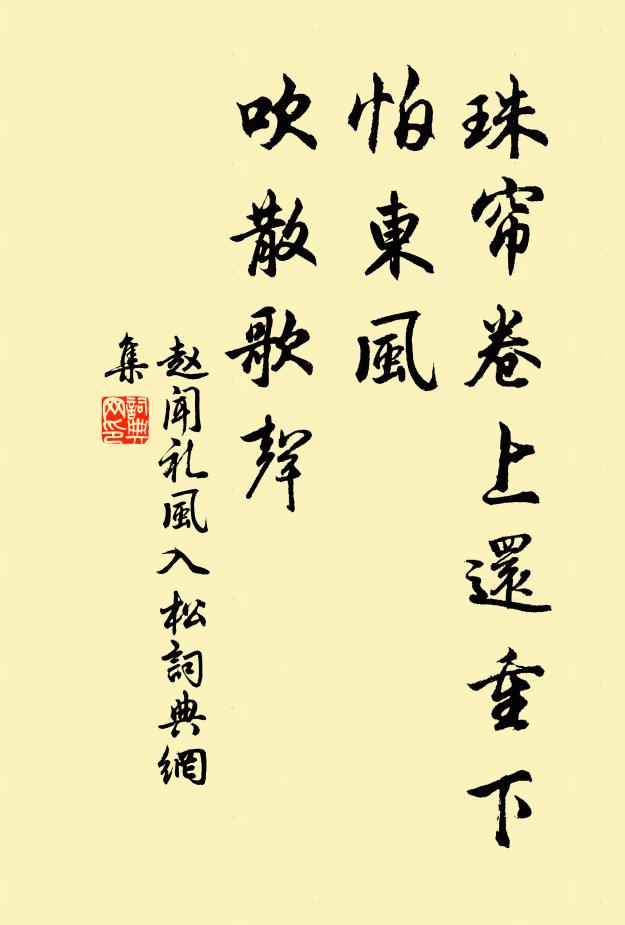 珠帘卷上還重下
怕東風
吹散歌聲
赵闻礼風入松詞典網
集
詞典
网印